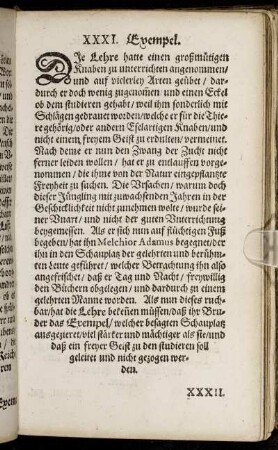 XXXI. Exempel.
DIe Lehre hatte einen großmütigen
Knaben zu unterrichten angenommen/
und auf vielerley Arten geübet / dar-
durch er doch wenig zugenom̃en und einen Eckel
ob dem studieren gehabt / weil ihm sonderlich mit
Schlägen gedrauet worden/welche er für die Thie-
re gehörig/oder andern Eselartigen Knaben/und
nicht einem freyem Geist zu erdulten/ vermeinet.
Nach deme er nun den Zwang der Zucht nicht
ferner leiden wollen / hat er zu entlauffen vorge-
nommen / die ihme von der Natur eingepflantzte
Freyheit zu suchen. Die Ursachen / warum doch
dieser Jüngling mit zuwachsenden Jahren in der
Geschicklichkeit nicht zunehmen wolte / wurde sei-
ner Unart/ und nicht der guten Unterrichtung
beygemessen. Als er sich nun auf flüchtigen Fuß
begeben/hat ihn Melchior Adamus begegnet/der
ihn in den Schauplatz der gelehrten und berühm-
ten Leute geführet / welcher Betrachtung ihn also
angefrischet / daß er Tag und Nacht/ freywillig
den Büchern obgelegen / und dardurch zu einem
gelehrten Manne worden. Als nun dieses ruch-
bar/hat die Lehre bekeñen müssen/daß ihr Bru-
der das Exempel/ welcher besagten Schauplatz
ausgezieret/viel stärker und mächtiger als sie/und
daß ein freyer Geist zu den studieren soll
geleitet und nicht gezogen wer-
den.
XXXII.